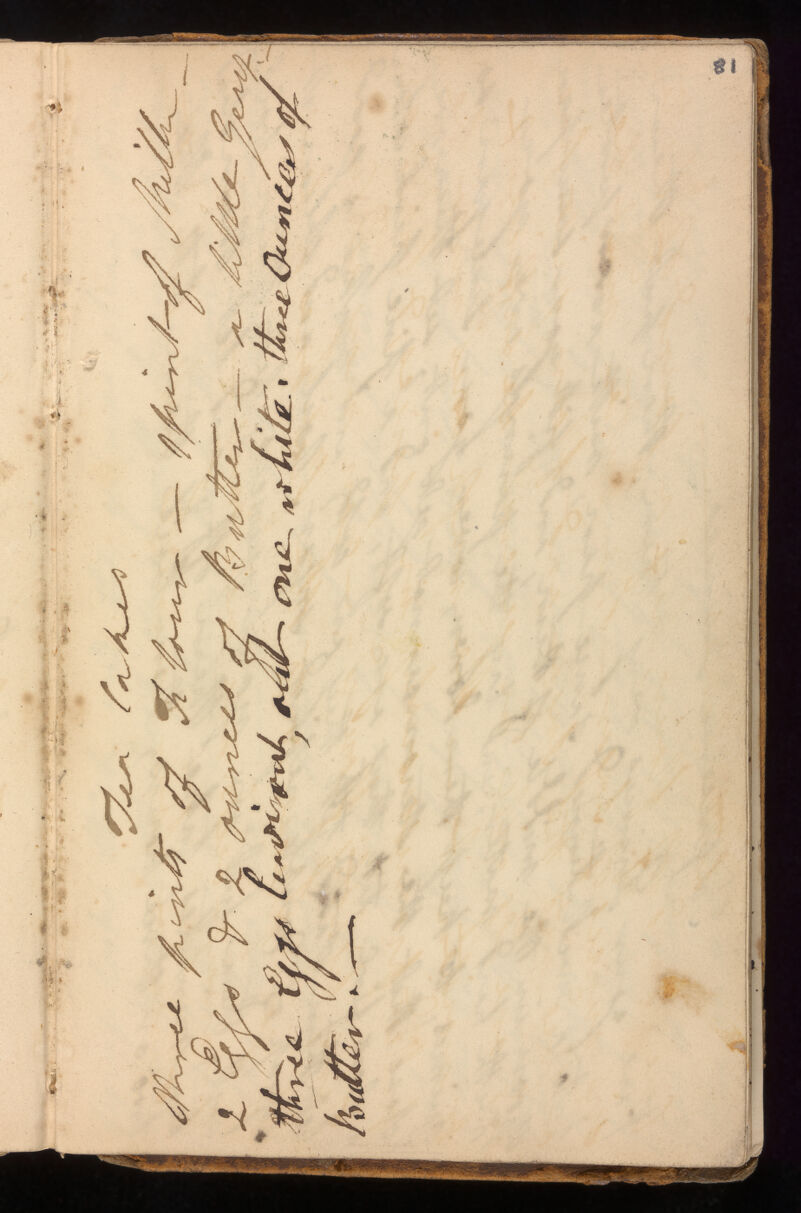 81
Tea Cakes
three pints of Flour — 1 pint of Milk —
2 Eggs & 2 ounces of Butter — a little
three Eggs out one white. three Ounces of
Butter. —